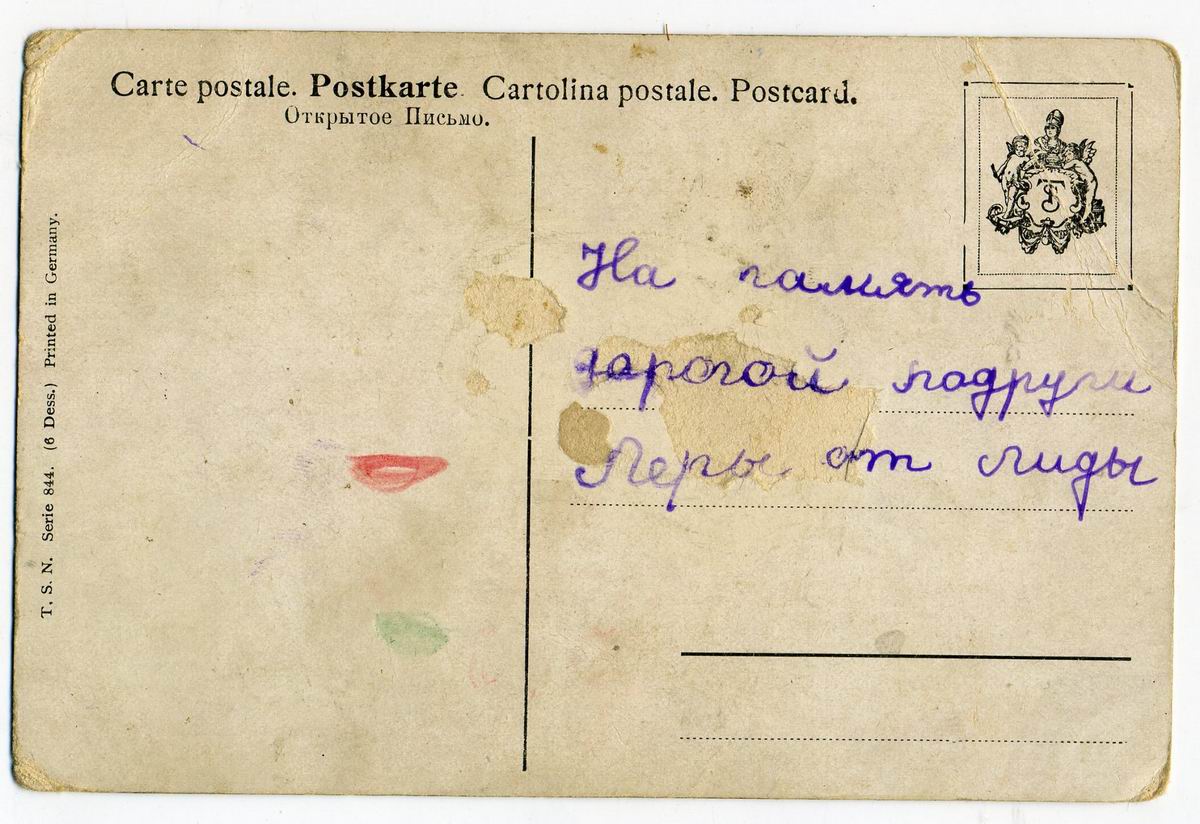 Carte postale. Postkarte. Cartolina postale. Postcard.
Открытое Письмо.
T. S. N. Serie 844. (6 Dess.) Printed in Germany.
TS
На память
дарогой подруги
Леры от Лиды